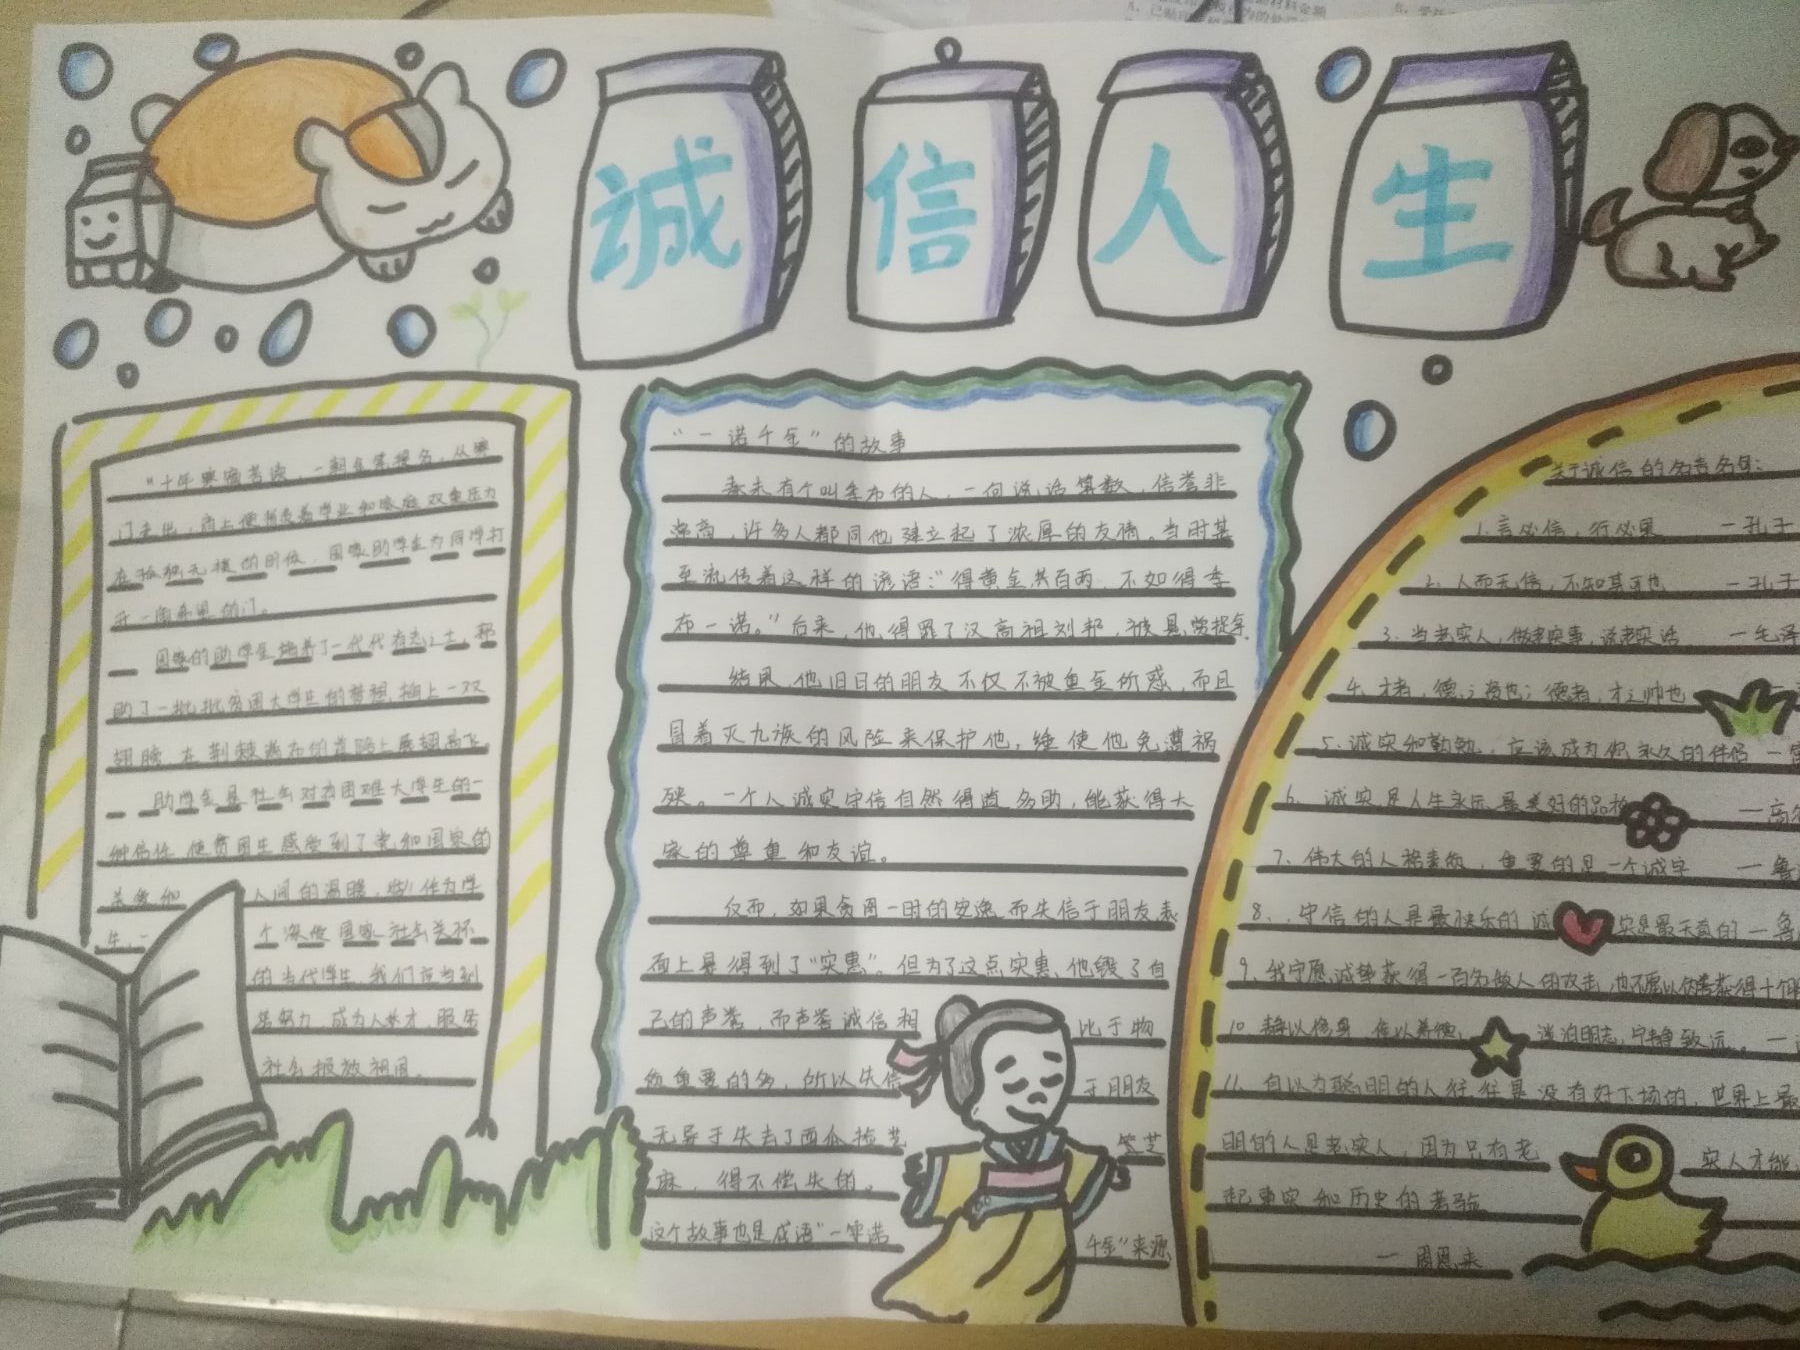 诚信人生
"十年寒窗苦读，一朝金榜提名，从寒
门走出，肩上便担负着学业和家庭双重压力
在孤独无援的时候，国家助学金为同学打
开一扇希望的门。
国家的助学金培养了一代代有志之士，帮
助了一批批贫困大学生的梦想插上一双
翅膀，在荆棘满布的道路上展翅高飞
助学金是社会对贫困难大学生的一
种信任，使贫困生感受到了党和国家的
关爱和人间的温暖，作为学
生，一个深受国家社会关怀
的当代学生，我们应当
努力，成为人才，服务
社会报效祖国。
"一诺千金"的故事
秦末有个叫季布的人，一向说话算数，信誉非
常高，许多人都同他建立起了浓厚的友情。当时甚
至流传着这样的谚语："得黄金共百两，不如得季
布一诺。"后来，他得罪了汉高祖刘邦，被悬赏捉拿
结果他旧日的朋友不仅不被重金所惑，而且
冒着灭九族的风险来保护他，使他免遭祸
殃。一个人诚实守信自然得道多助，能获得大
家的尊重和友谊。
反而，如果贪图一时的安逸而失信于朋友表
面上是得到了"实惠"。但为了这点实惠他毁了自
己的声誉，而声誉诚信相比于物
质重要的多，所以失信于朋友
无异于失去了西瓜捡芝
麻，得不偿失的。
这个故事也是成语"一诺千金"来源
关于诚信的名言名句：
1、言必信，行必果 —孔子
2、人而无信，不知其可也 —孔子
3、当老实人，做老实事，说老实话 —毛泽
4、才者，德之资也；德者，才之帅也
5、诚实和勤勉，应该成为你永久的伴侣
6、诚实是人生永远最美好的品格 —高尔
7、伟大的人格素质，重要的是一个诚字 —鲁
8、守信的人是最快乐的 诚实是最天真的 —鲁
9、我宁愿诚挚获得一百名敌人的攻击，也不愿以伪善获得十个朋
10、静以修身，俭以养德，淡泊明志，宁静致远。
11、自以为聪明的人往往是没有好下场的，世界上最
明的人是老实人，因为只有老实人才能
起事实和历史的考验
—周恩来